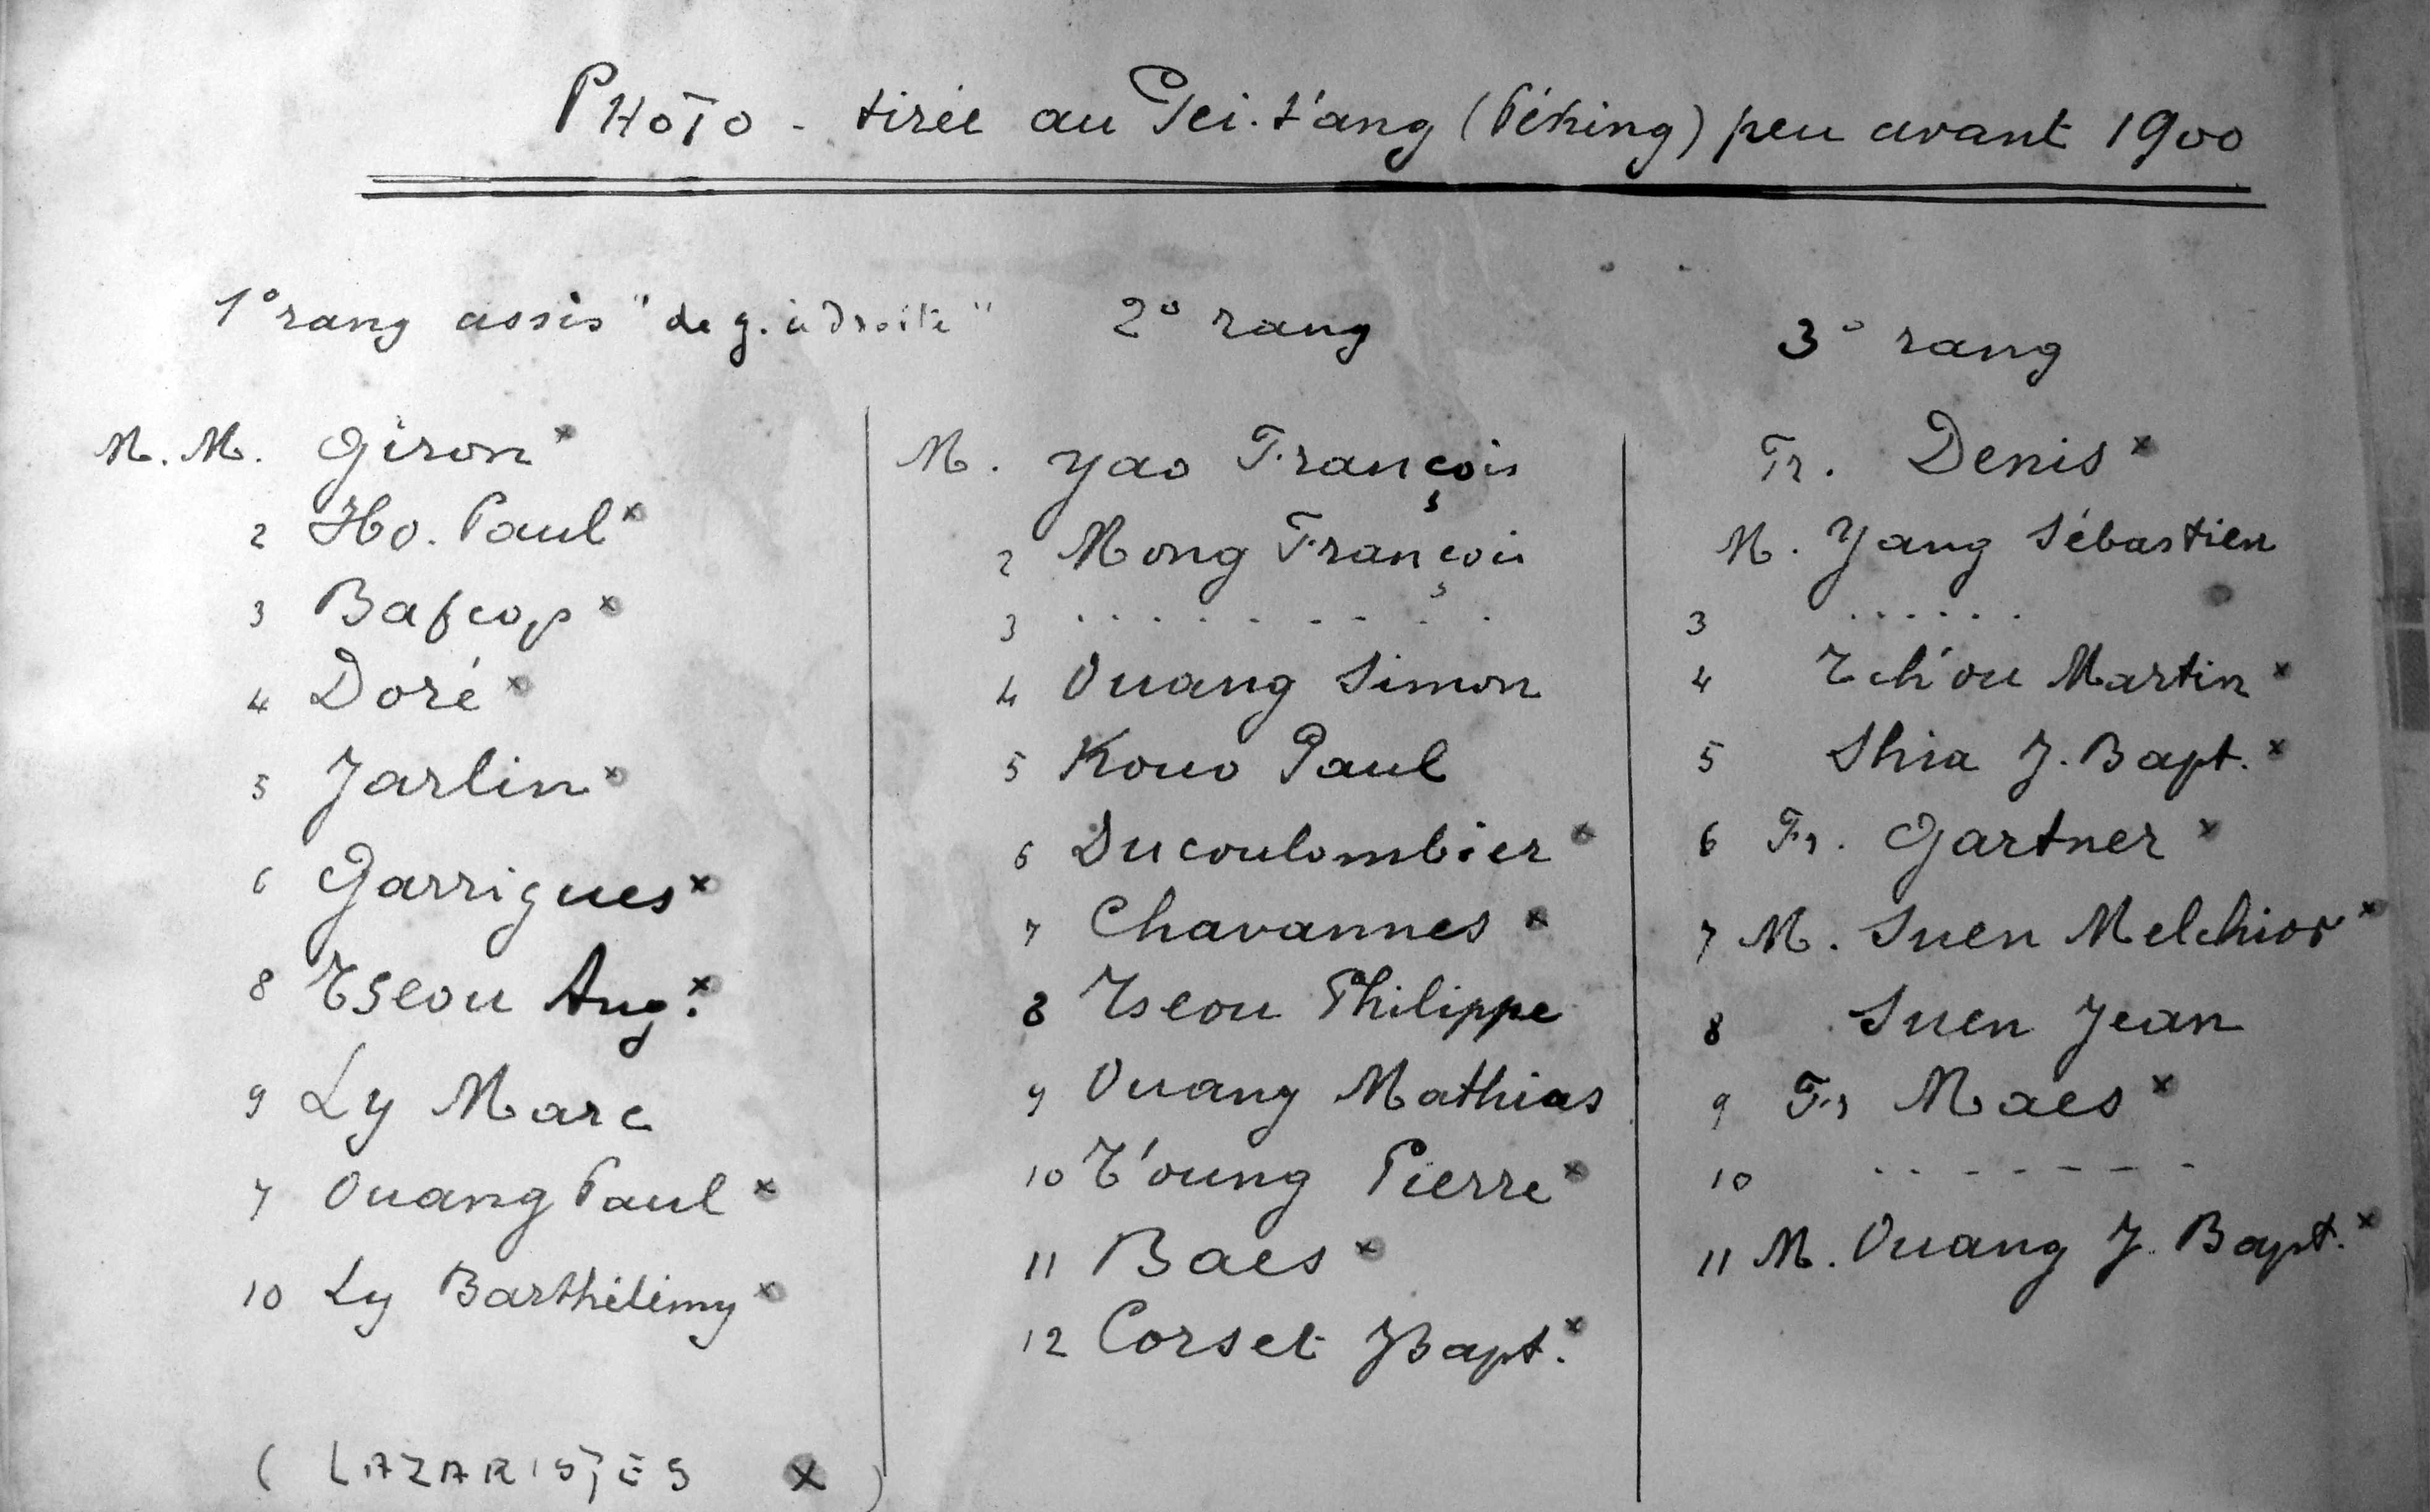 PHOTO - tirée au Pei.t'ang (Péking) peu avant 1900
1° rang assis "de g. à Droite"
M.M. Giron x
2 Ho. Paul x
3 Bafcop x
4 Doré x
5 Jarlin x
6 Garrigues x
8 Tseou Aug. x
9 Ly Marc
7 Ouang Paul x
10 Ly Barthélémy x
( LAZARISTES x )
2° rang
M. Yao François
2 Mong François
3 . . . . . . . . . .
4 Ouang Simon
5 Kouo Paul
6 Ducoulombier x
7 Chavannes x
8 Tseou Philippe
9 Ouang Mathias
10 T'oung Pierre x
11 Baes x
12 Corset JBapt. x
3° rang
Fr. Denis x
M. Yang Sébastien
3 . . . . . .
4 Tch'ou Martin x
5 Shia J. Bapt. x
6 Fr. Gartner x
7 M. Suen Melchior x
8 Suen Jean
9 Fr Maes x
10 . . - - - - .
11 M. Ouang J. Bapt. x